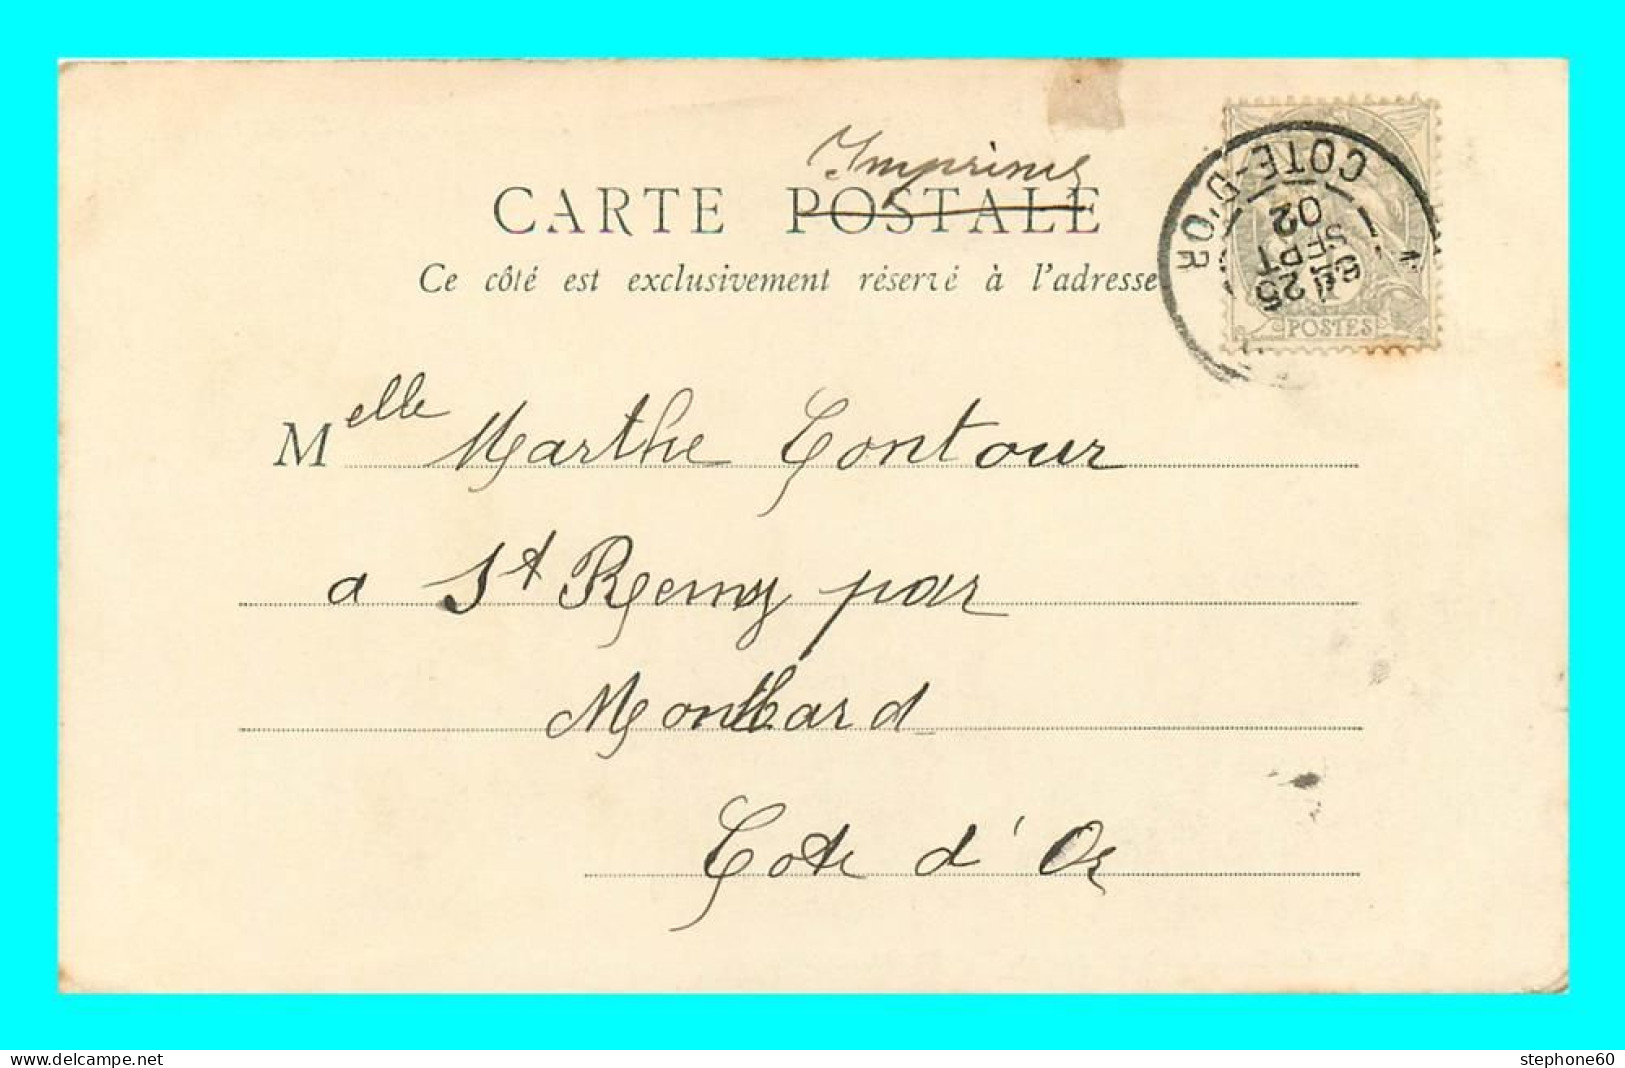 Imprimé
CARTE POSTALE
Ce côté est exclusivement réservé à l'adresse
COTE-D'OR
25
SEPT
02
POSTES
Melle Marthe Contour
a St Remy par
Montbard
Cote d'Or
www.delcampe.net
stephone60